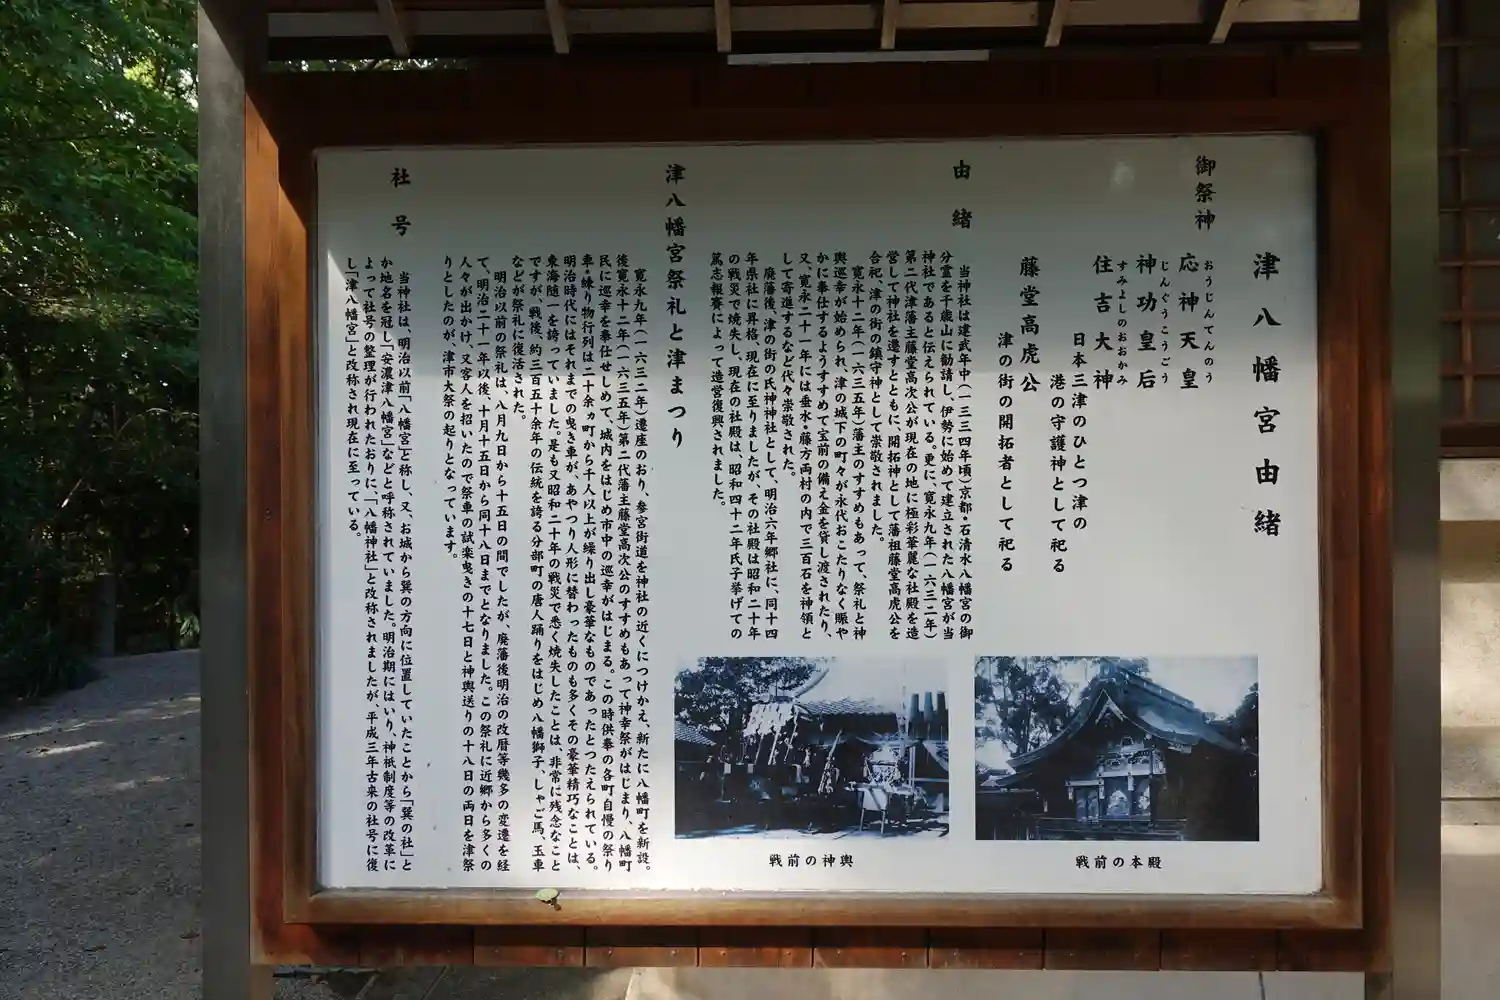 津八幡宮由緒
御祭神
応神天皇
おうじんてんのう
神功皇后
じんぐうこうごう
住吉大神
すみよしのおおかみ
日本三津のひとつ津の
港の守護神として祀る
藤堂高虎公
津の街の開拓者として祀る
由緒
当神社は建武年中(一三三四年頃)京都・石清水八幡宮の御
分霊を千歳山に勧請し、伊勢に始めて建立された八幡宮が当
神社であると伝えられている。更に、寛永九年(一六三二年)
第二代津藩主藤堂高次公が現在の地に極彩華麗な社殿を造
営して神社を遷すとともに、開拓神として藩祖藤堂高虎公を
合祀、津の街の鎮守神として崇敬されました。
寛永十二年(一六三五年)藩主のすすめもあって、祭礼と神
輿巡幸が始められ、津の城下の町々が永代おこたりなく賑や
かに奉仕するようすすめて宝前の備え金を貸し渡されたり、
又、寛永二十一年には垂水・藤方両村の内で三百石を神領と
して寄進するなど代々崇敬された。
廃藩後、津の街の氏神神社として、明治六年郷社に、同十四
年県社に昇格、現在に至りましたが、その社殿は昭和二十年
の戦災で焼失し、現在の社殿は、昭和四十二年氏子挙げての
篤志報賽によって造営復興されました。
津八幡宮祭礼と津まつり
寛永九年(一六三二年)遷座のおり、参宮街道を神社の近くにつけかえ、新たに八幡町を新設。
後寛永十二年(一六三五年)第二代藩主藤堂高次公のすすめもあって神幸祭がはじまり、八幡町
民に巡幸を奉仕せしめて、城内をはじめ市中の巡幸がはじまる。この時供奉の各町自慢の祭り
車・練り物行列は二十余ヵ町から千人以上が繰り出し豪華なものであったとつたえられている。
明治時代にはそれまでの曳き車が、あやつり人形に替わったものも多くその豪華精巧なことは、
東海随一を誇っていました。是も又昭和二十年の戦災で悉く焼失したことは、非常に残念なこと
ですが、戦後、約三百五十余年の伝統を誇る分部町の唐人踊りをはじめ八幡獅子、しゃご馬、玉車
などが祭礼に復活された。
明治以前の祭礼は、八月九日から十五日の間でしたが、廃藩後明治の改暦等幾多の変遷を経
て、明治二十一年以後、十月十五日から同十八日までとなりました。この祭礼に近郷から多くの
人々が出かけ、又客人を招いたので祭車の試楽曳きの十七日と神輿送りの十八日の両日を津祭
りとしたのが、津市大祭の起りとなっています。
社号
当神社は、明治以前「八幡宮」と称し、又、お城から巽の方向に位置していたことから「巽の社」と
か地名を冠し「安濃津八幡宮」などと呼称されていました。明治期にはいり、神祇制度等の改革に
よって社号の整理が行われたおりに、「八幡神社」と改称されましたが、平成三年古来の社号に復
し「津八幡宮」と改称され現在に至っている。
戦前の本殿
戦前の神輿